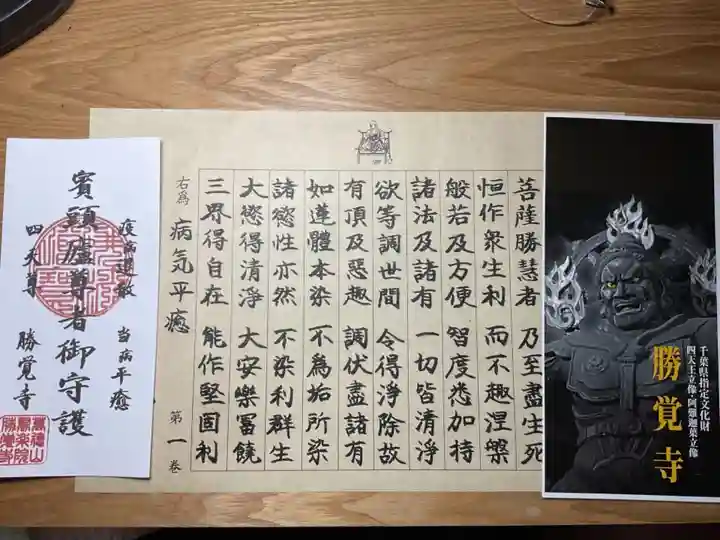 菩薩勝慧者 乃至盡生死
恒作衆生利 而不趣涅槃
般若及方便 智度悉加持
諸法及諸有 一切皆清淨
欲等調世間 令得淨除故
有頂及惡趣 調伏盡諸有
如蓮體本染 不為垢所染
諸慾性亦然 不染利群生
大慾得清淨 大安樂冨饒
三界得自在 能作堅固利
右為 病気平癒
第一巻
疫病退散
当病平癒
賓頭盧尊者御守護
四天尊
勝覚寺
千葉県指定文化財
四天王立像・阿難迦葉立像
勝覚寺